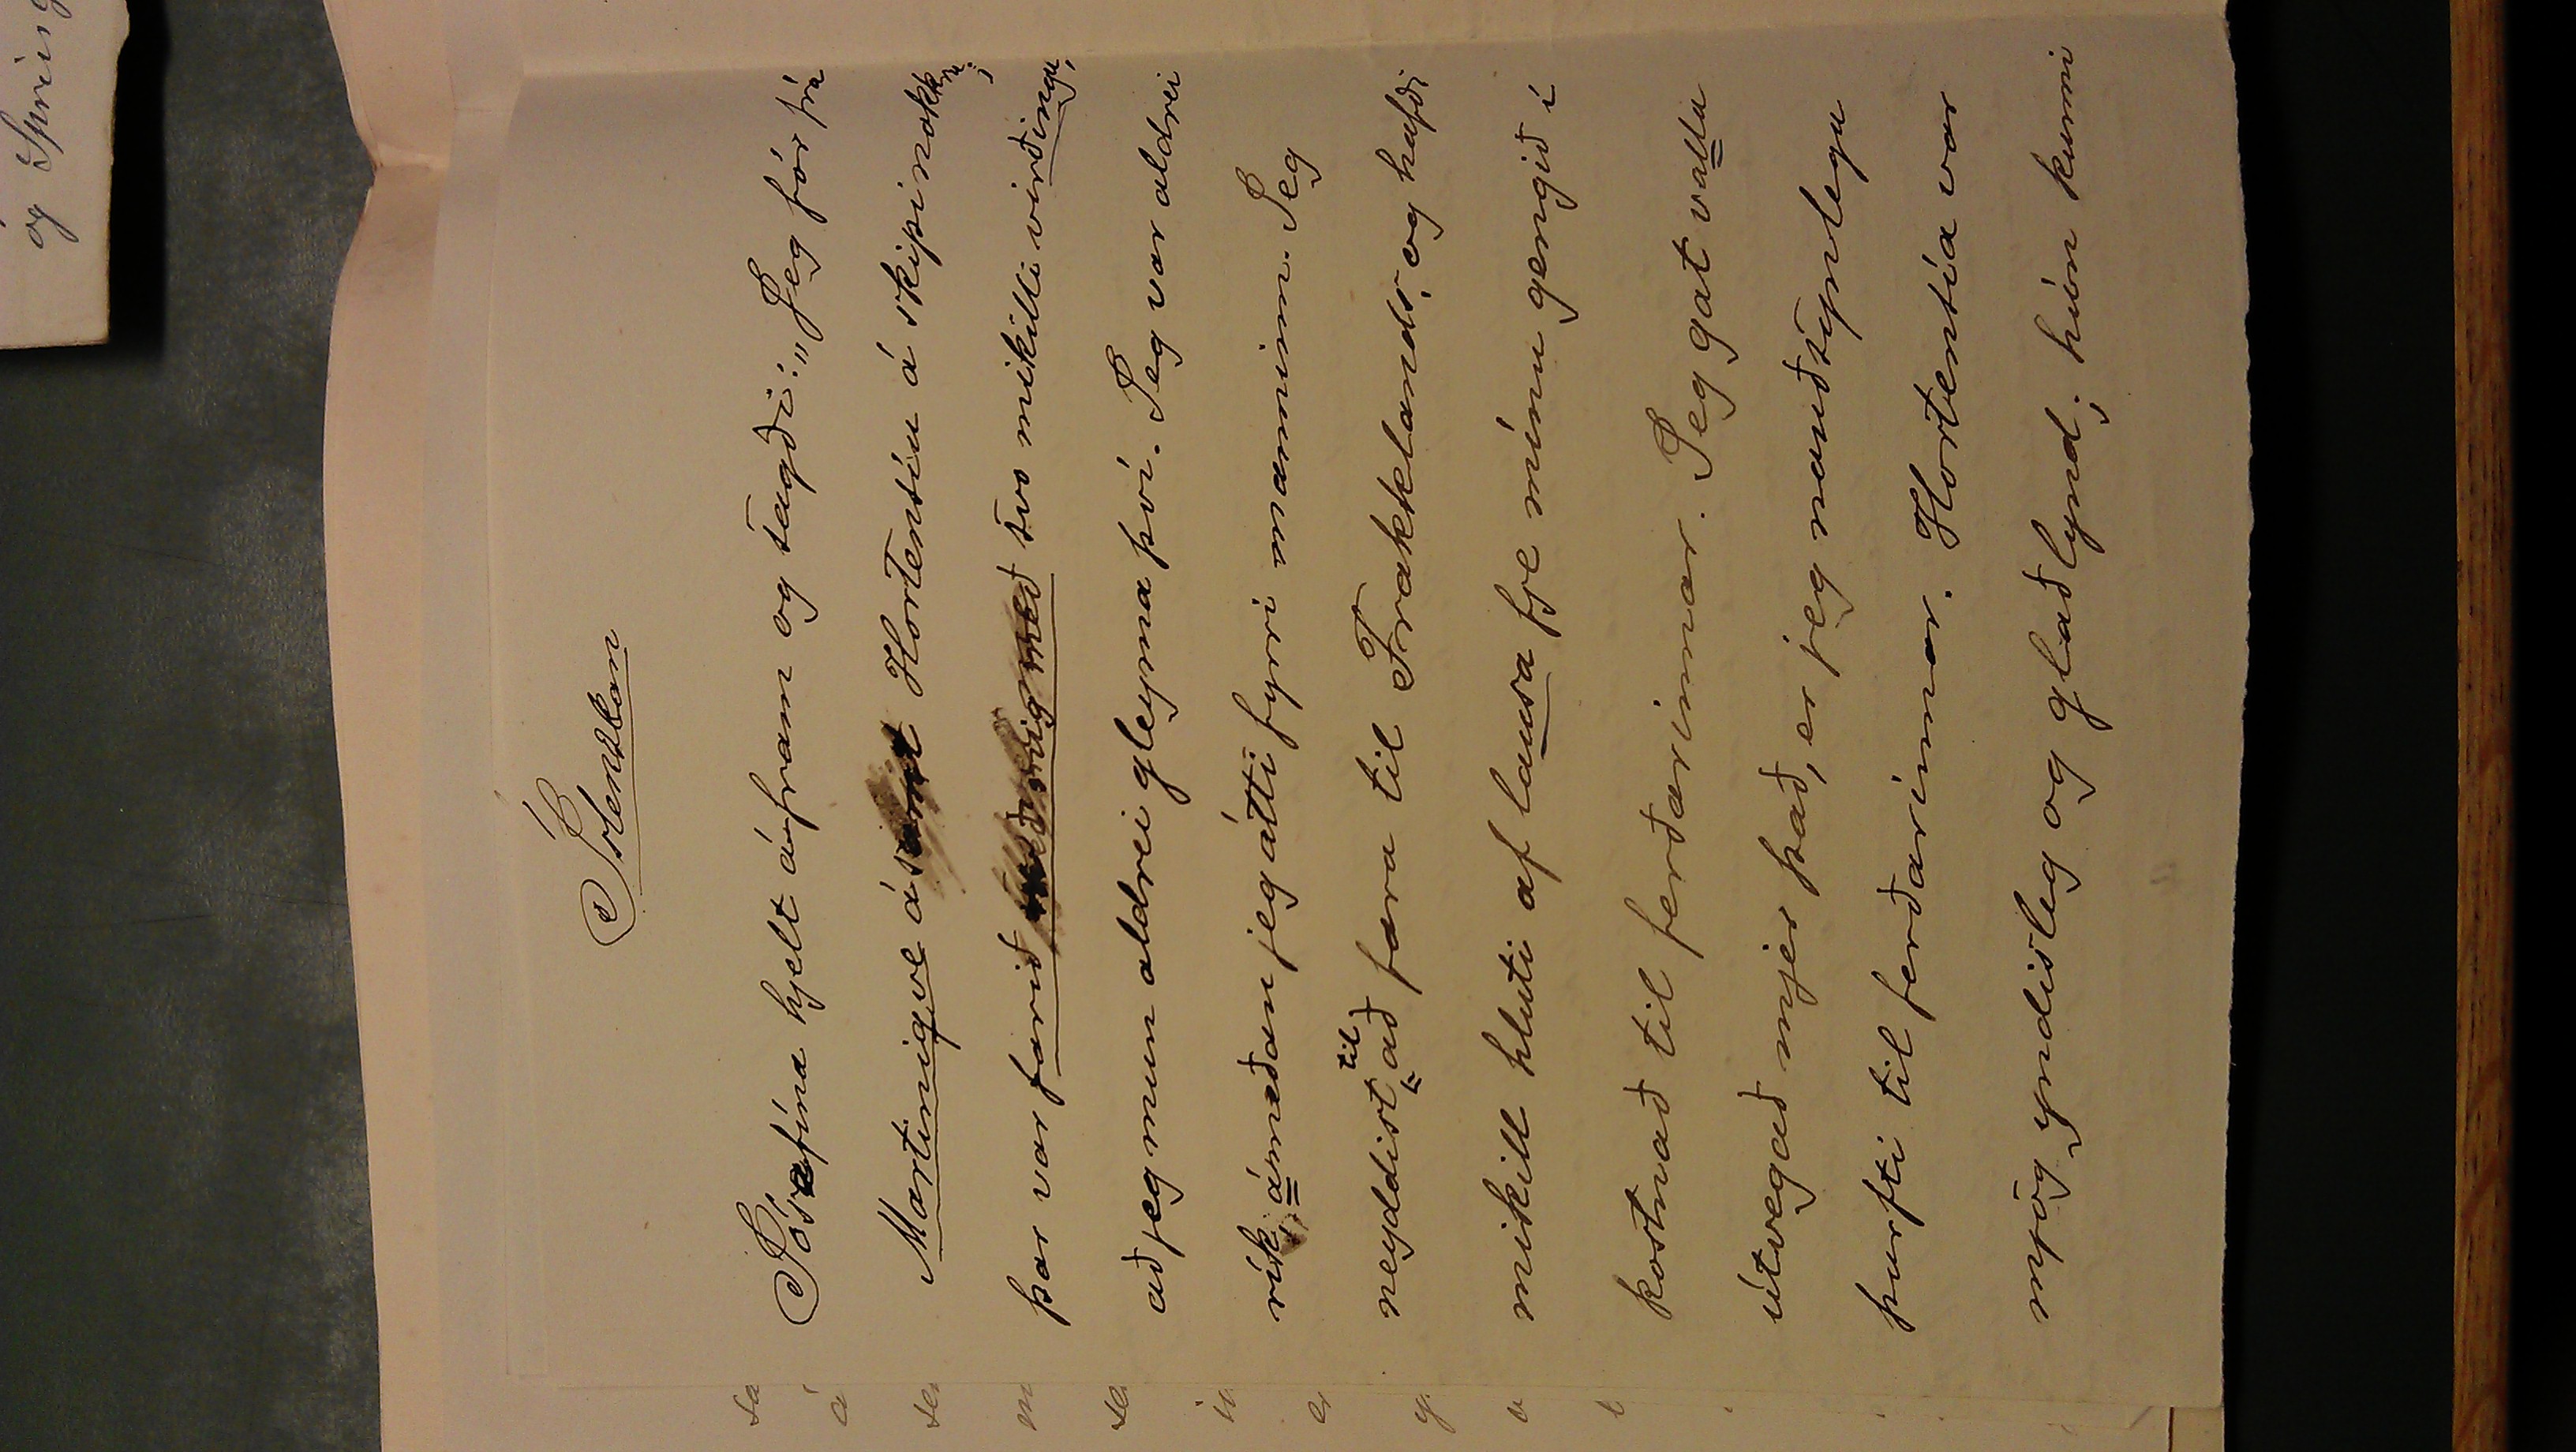 og Spring
Íslenzkan
Jósefína hjelt áfram og sagði: „Jeg fór frá
Martinique ásamt Hortensíu á skipi nokkru;
þar var farið með svo mikilli virðingu,
að jeg mun aldrei gleyma því. Jeg var aldrei
rík, ámeðan jeg átti fyrri manninn. Jeg
neyddist til að fara til Frakklands, og hafði
mikill hluti af lausa fje mínu gengið í
kostnað til ferðarinnar. Jeg gat valla
útvegað mjer það, er jeg nauðsynlega
þurfti til ferðarinnar. Hortensía var
mjög yndisleg og glaðlynd; hún kunni